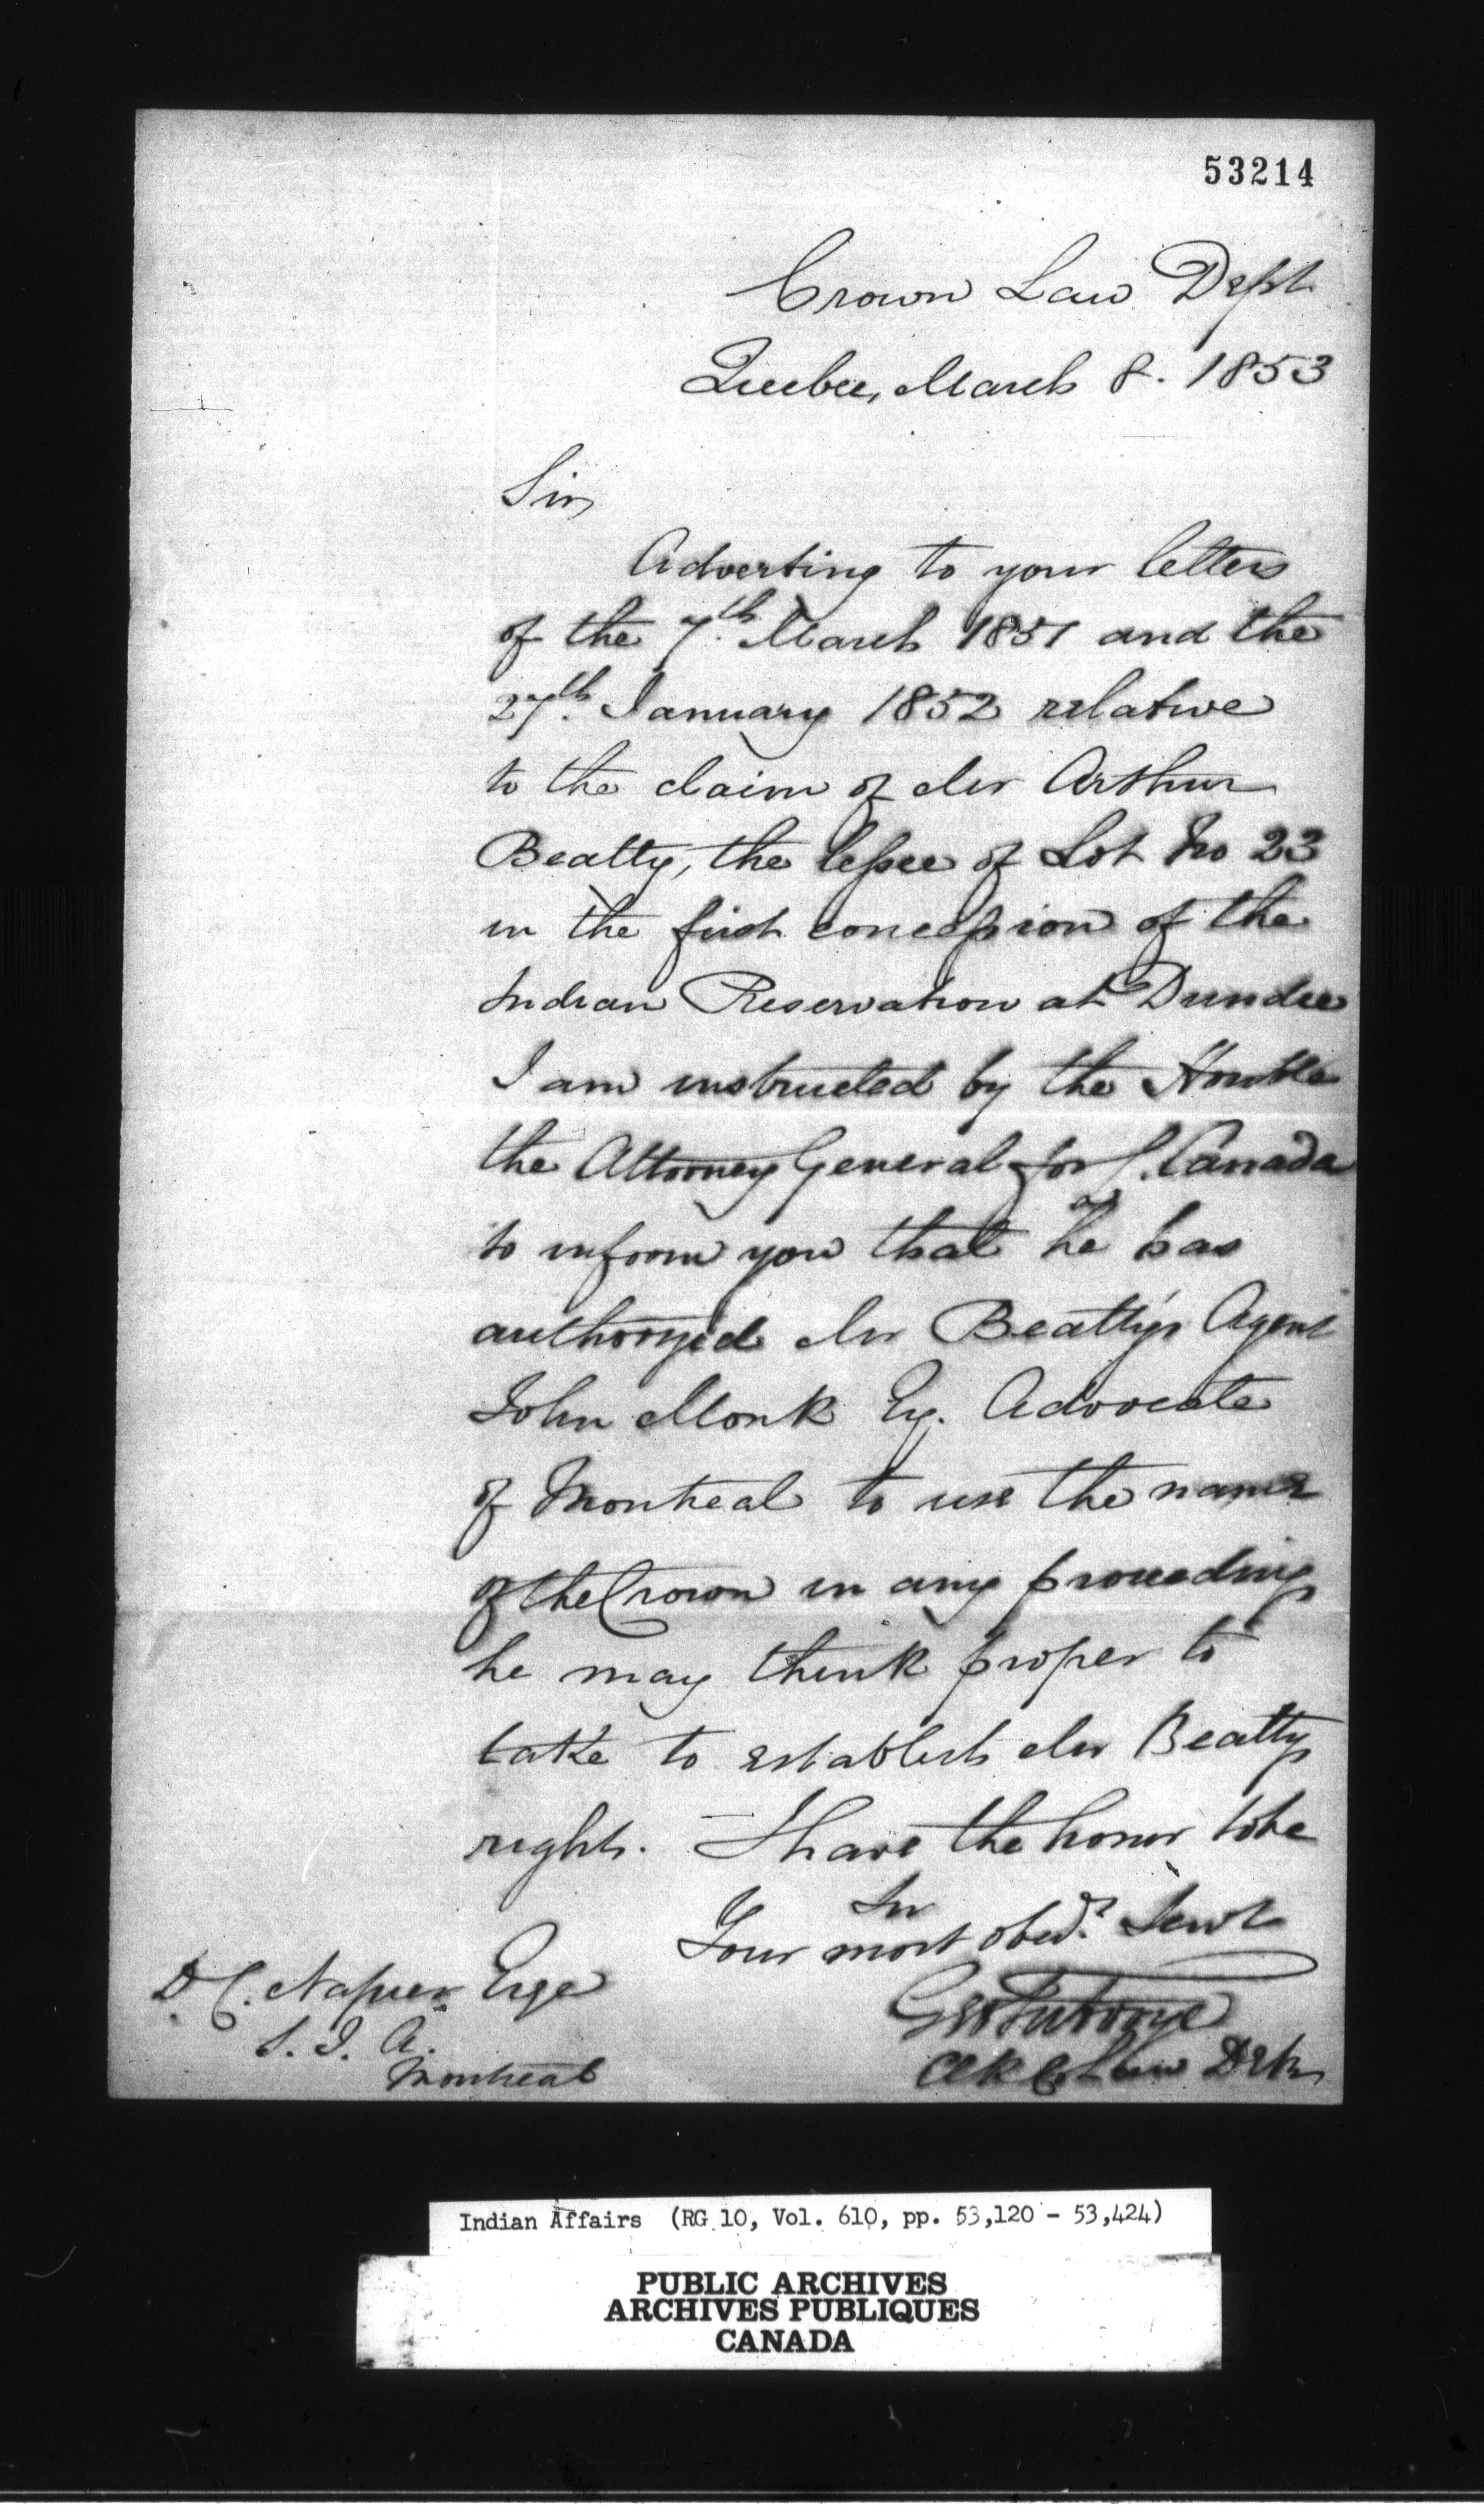 53214
Crown Law Dept
Quebec, March 8. 1853
Sir,
Adverting to your letters
of the 7th March 1851 and the
27th January 1852 relative
to the claim of Mr Arthur
Beatty, the lessee of Lot No 23
in the first concession of the
Indian Reservation at Dundee
I am instructed by the Honble
the Attorney General for L. Canada
to inform you that he has
authorized Mr Beatty's Agent
John Monk Esq. Advocate
of Montreal to use the name
of the Crown in any proceedings
he may think proper to
take to establish Mr Beattys
right. I have the honor to be
Sir
Your most obedt Servt
D. C. Napier Esqe
S. I. A.
Montreal
Clk C. Law Dept
Indian Affairs (RG 10, Vol. 610, pp. 53,120 - 53,424)
PUBLIC ARCHIVES
ARCHIVES PUBLIQUES
CANADA